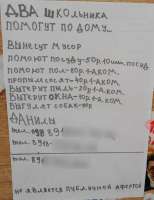 ДВА ШКОЛЬНИКА
ПОМОГУТ ПО ДОМУ...
ВЫНЕСУТ МУСОР
ПОМОЮТ ПОСУДУ-50р.10шт.посуд.
ПОМОЮТ ПОЛ-80р.1-А КОМ.
ПРОПЫЛЕСОСЯТ-40р.1-А КОМ.
ВЫТЕРИТ ПЫЛЬ-20р.1-А КОМ.
ВЫТЕРИТ ОКНА-40р.1-А КОМ.
ВЫГУЛЯТ СОБАК-40р
ДАНИЛЫ
тел. 89
тел. 89
тел. 89
НЕ ЯВЛЯЕТСЯ ПУБЛИЧНОЙ АФЕРТОЙ